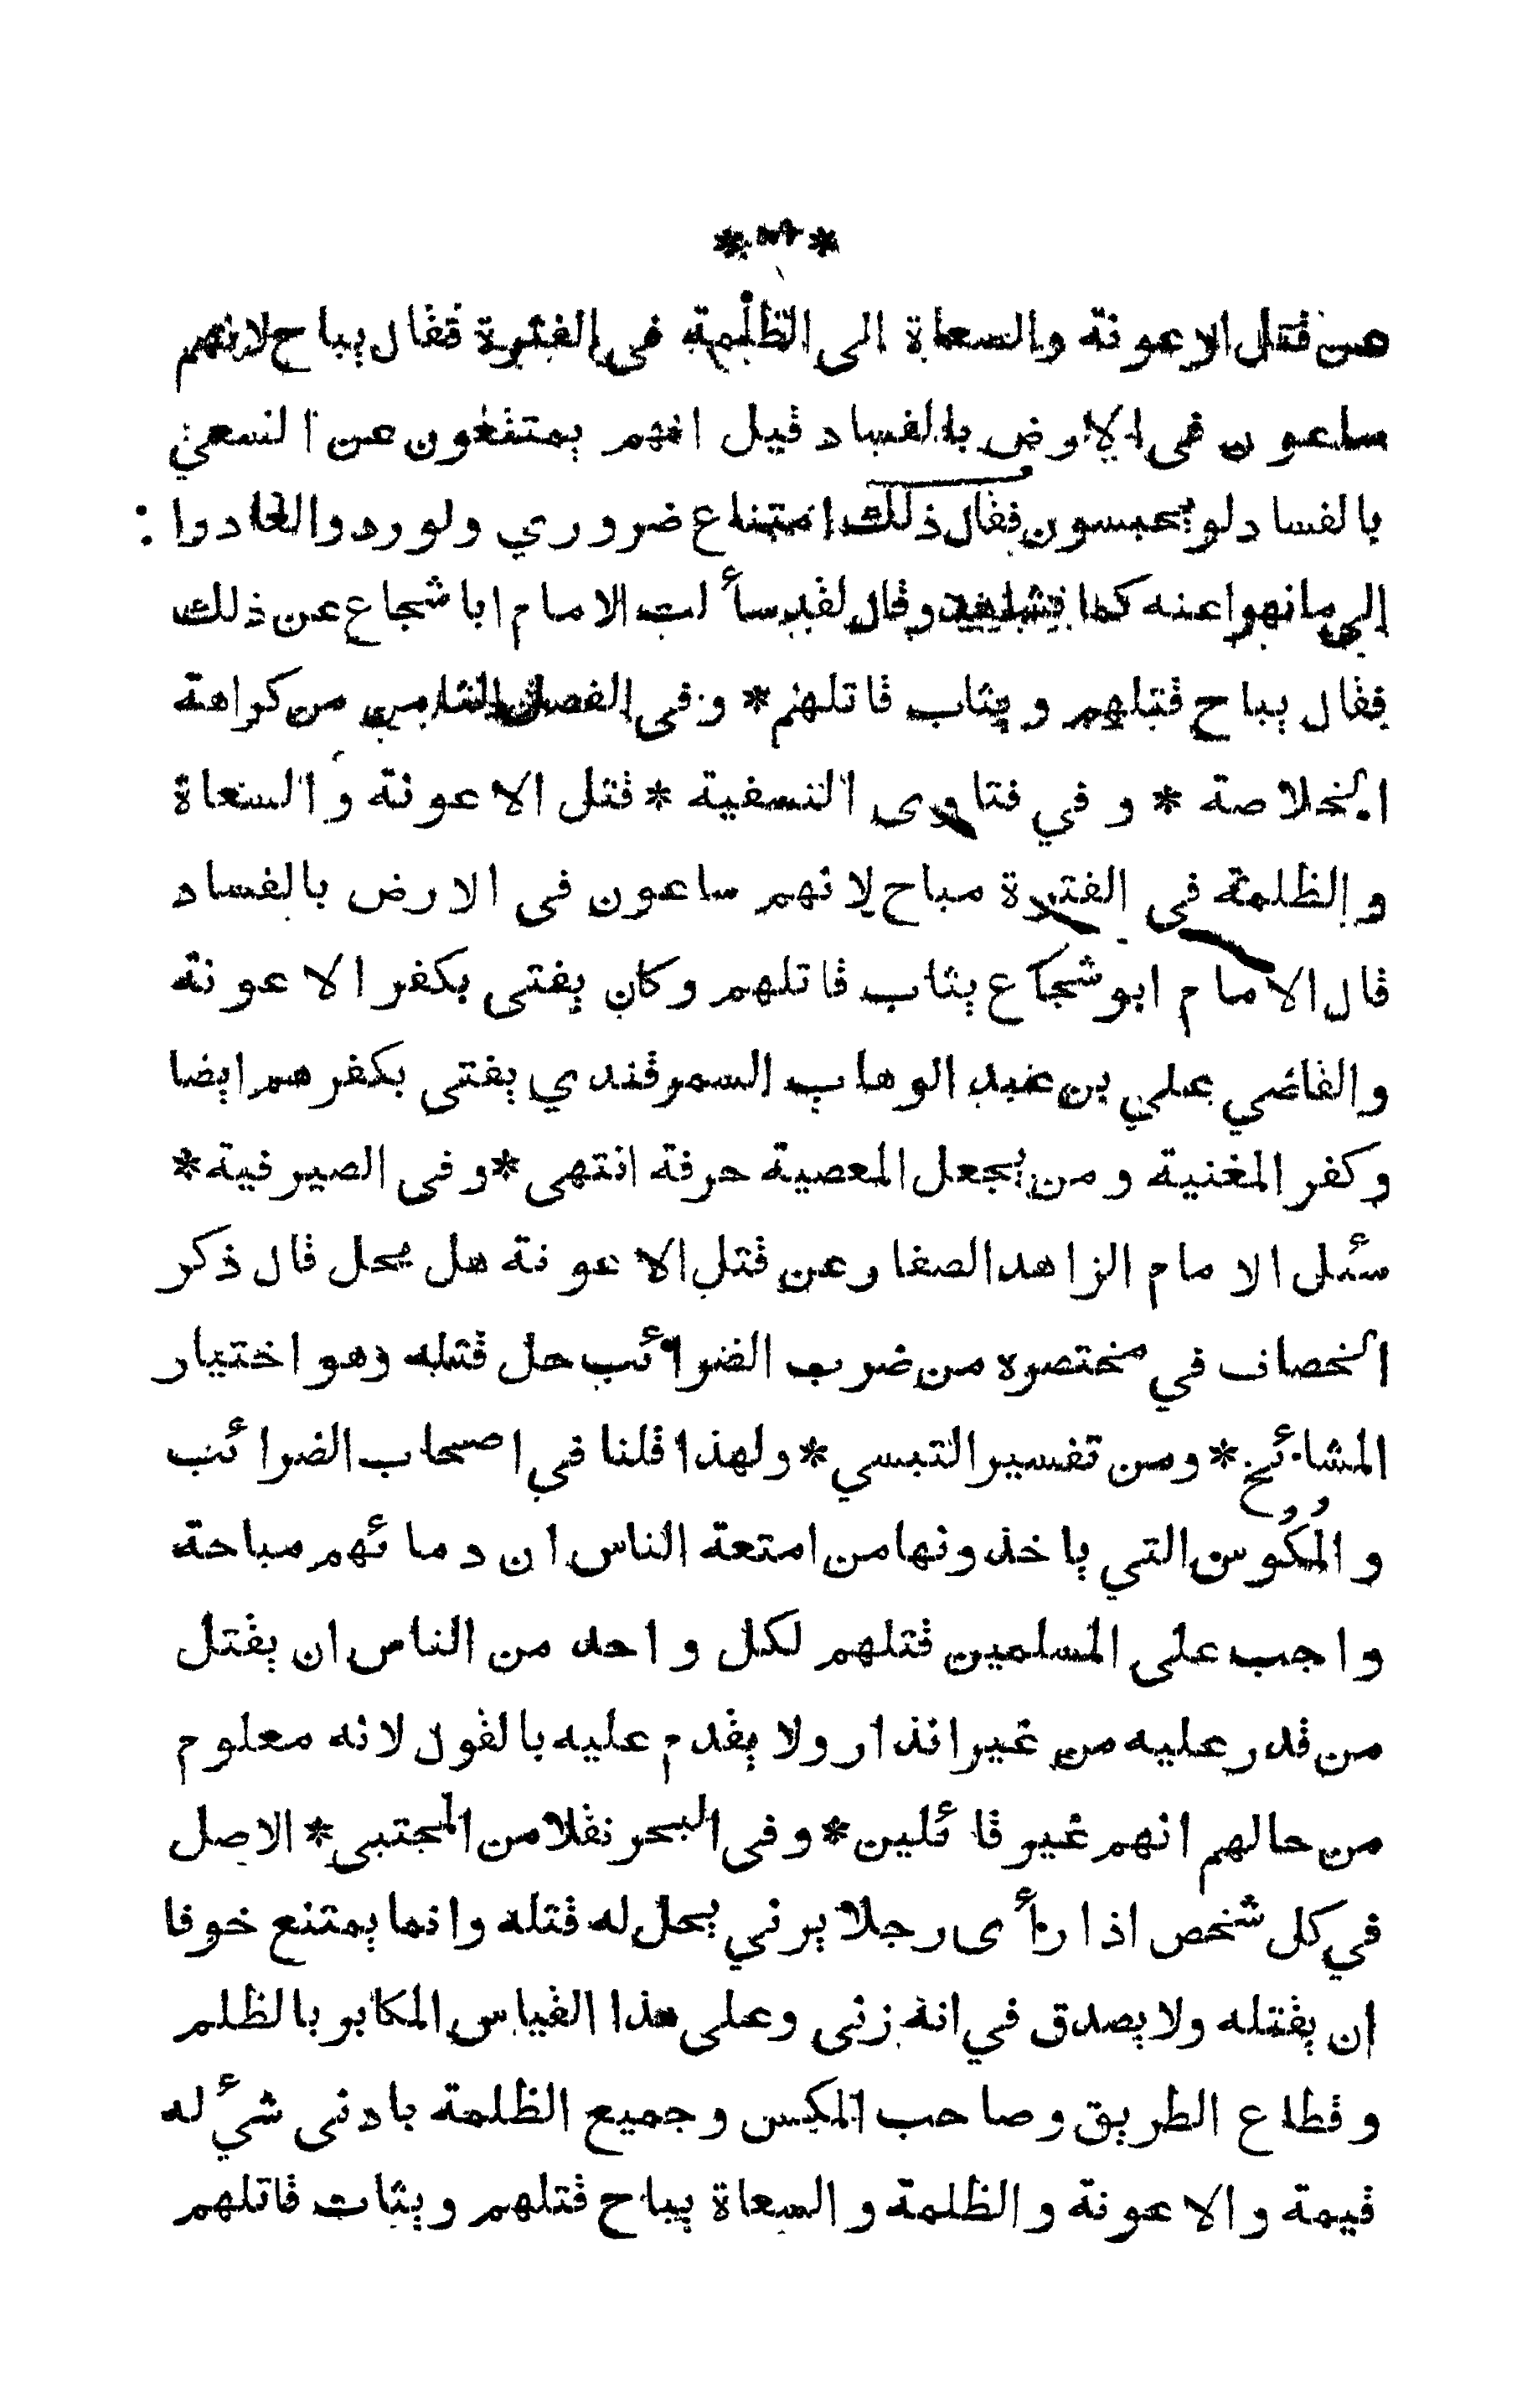 عن قتل الاعونة والسعاة الى الظلمة فى الفترة فقال يباح لانهم
ساعون فى الارض بالفساد قيل انهم يمتنعون عن السعي
بالفساد لو يحبسون فقال ذلك امتناع ضروري ولو ردوا لعادوا
الى ما نهوا عنه كما نشاهد وقال لقد سألت الامام ابا شجاع عن ذلك
فقال يباح قتلهم ويثاب قاتلهم * وفى الفصل الثامن من كراهة
الخلاصة * وفي فتاوى النسفية * قتل الاعونة والسعاة
والظلمة فى الفترة مباح لانهم ساعون فى الارض بالفساد
قال الامام ابو شجاع يثاب قاتلهم وكان يفتى بكفر الاعونة
والقاضي علي بن عبد الوهاب السمرقندي يفتى بكفرهم ايضا
وكفر المغنية ومن يجعل المعصية حرفة انتهى * وفى الصيرفية *
سئل الامام الزاهد الصفار عن قتل الاعونة هل يحل قال ذكر
الخصاف في مختصره من ضرب الضرائب حل قتله وهو اختيار
المشائخ * ومن تفسير التبسي * ولهذا قلنا في اصحاب الضرائب
والمُكُوس التي ياخذونها من امتعة الناس ان دمائهم مباحة
واجب على المسلمين قتلهم لكل واحد من الناس ان يقتل
من قدر عليه من غير انذار ولا يقدم عليه بالقول لانه معلوم
من حالهم انهم غير قائلين * وفى البحر نقلا من المجتبى * الاصل
في كل شخص اذا رأى رجلا يزني يحل له قتله وانما يمتنع خوفا
ان يقتله ولا يصدق في انه زنى وعلى هذا القياس المكابر بالظلم
وقطاع الطريق وصاحب المكس وجميع الظلمة بادنى شيء له
قيمة والاعونة والظلمة والسعاة يباح قتلهم ويثاب قاتلهم